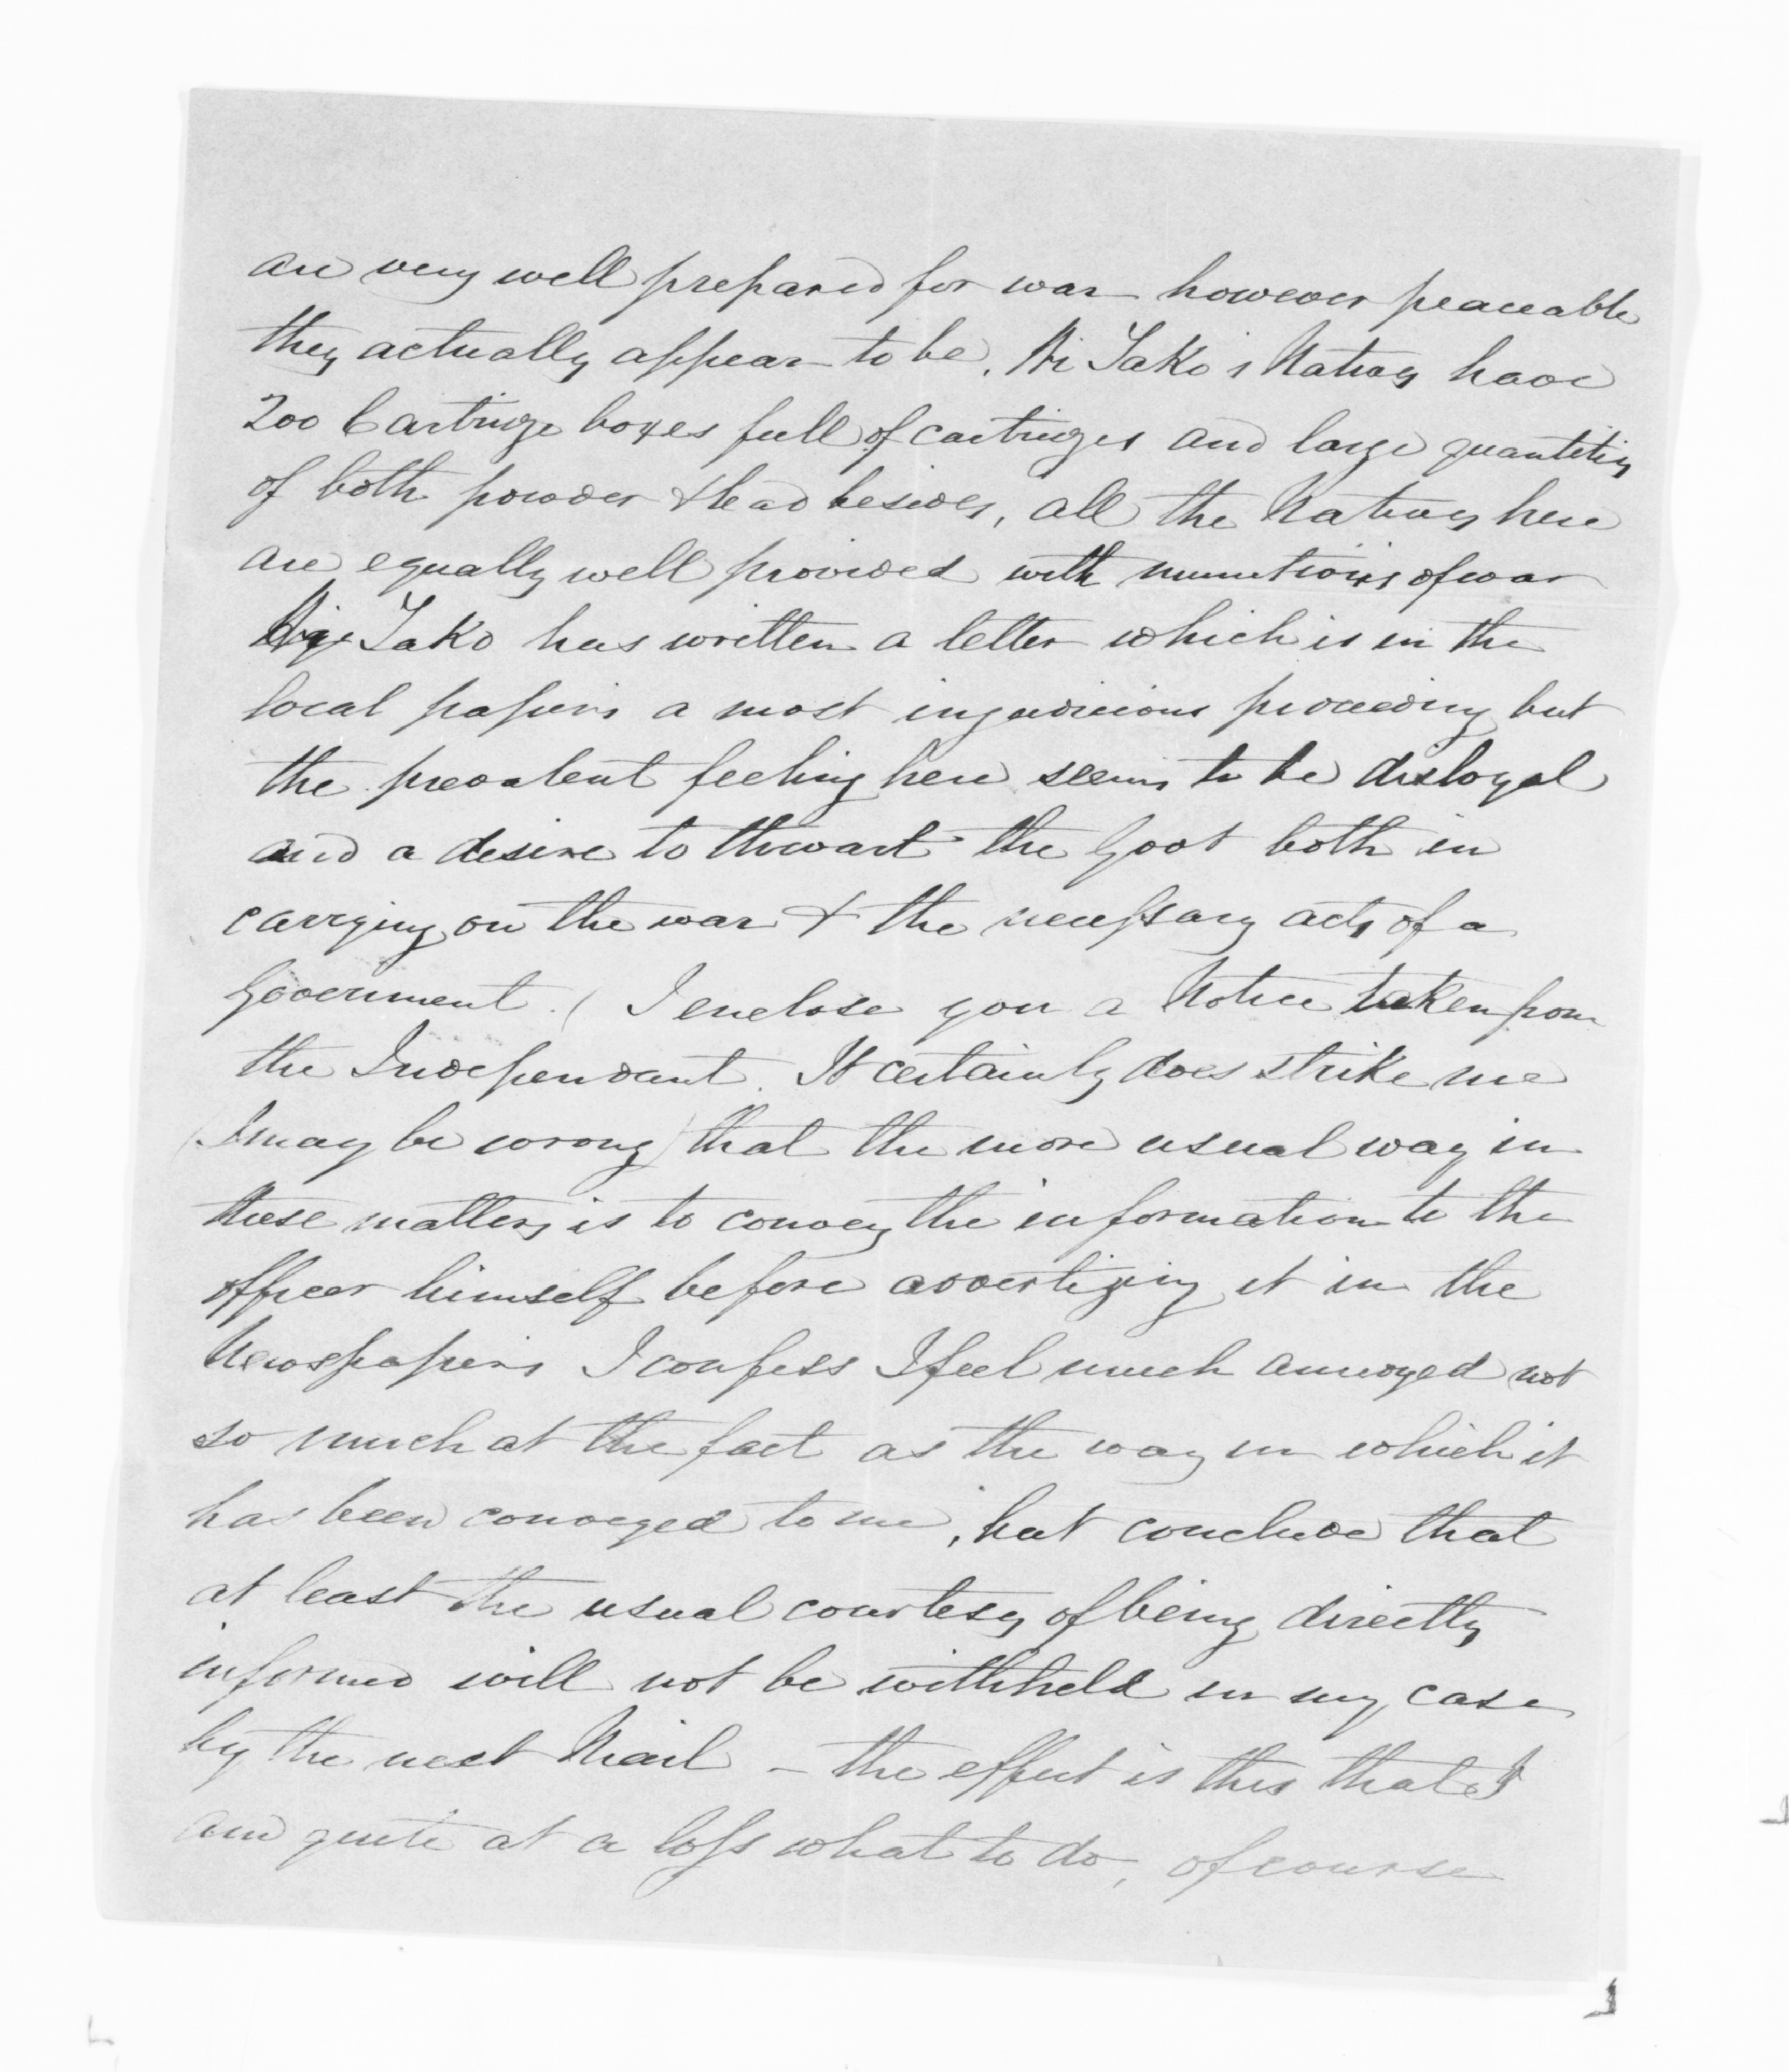 are very well prepared for war however peaceable
they actually appear to be. Wi Tako's Natives have
200 Cartridge boxes full of cartridges and large quantities
of both powder & lead besides, all the Natives here
are equally well provided with munitions of war
Tako has written a letter which is in the
local papers a most injudicious proceeding but
the prevalent feeling here seems to be disloyal
and a desire to thwart the Govt both in
carrying on the war & the necessary acts of a
Government. ( I enclose you a Notice taken from
the Independant. It certainly does strike me
(I may be wrong) that the more usual way in
these matters is to convey the information to the
officer himself before advertizing it in the
Newspapers I confess I feel much annoyed not
so much at the fact as the way in which it
has been conveyed to me, but conclude that
at least the usual courtesy of being directly
informed will not be withheld in my case
by the next Mail - the effect is this that I
am quite at a loss what to do, of course